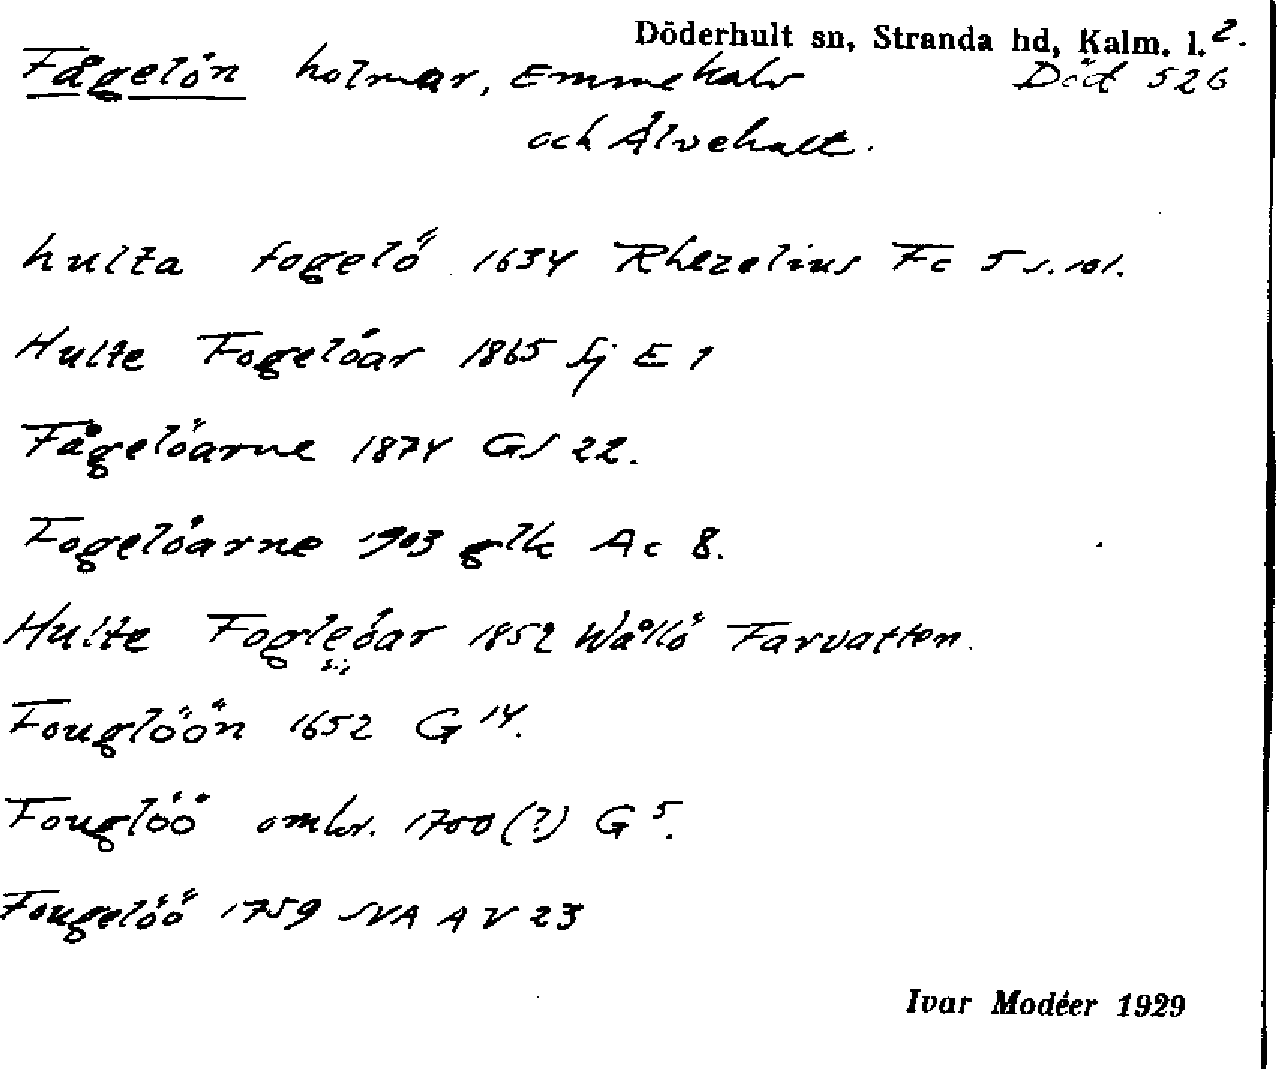 Döderhult sn, Stranda hd, Kalm. l. 2.
Fågelön holmar, Emmekalv Död 526
och Älvehult.
hulta fogelö 1634 Rhezelius Fc 5 s. 101.
Hulte Fogelöar 1865 Sj E 1
Fågelöarne 1874 GS 22.
Fogelöarne 1903 glk Ac 8.
Hulte Fogleöar 1852 Wållö Farvatten.
Fouglöön 1652 G 14.
Fouglöö omkr. 1700 (?) G 5.
Fougelöö 1759 SVA A V 23
Ivar Modéer 1929